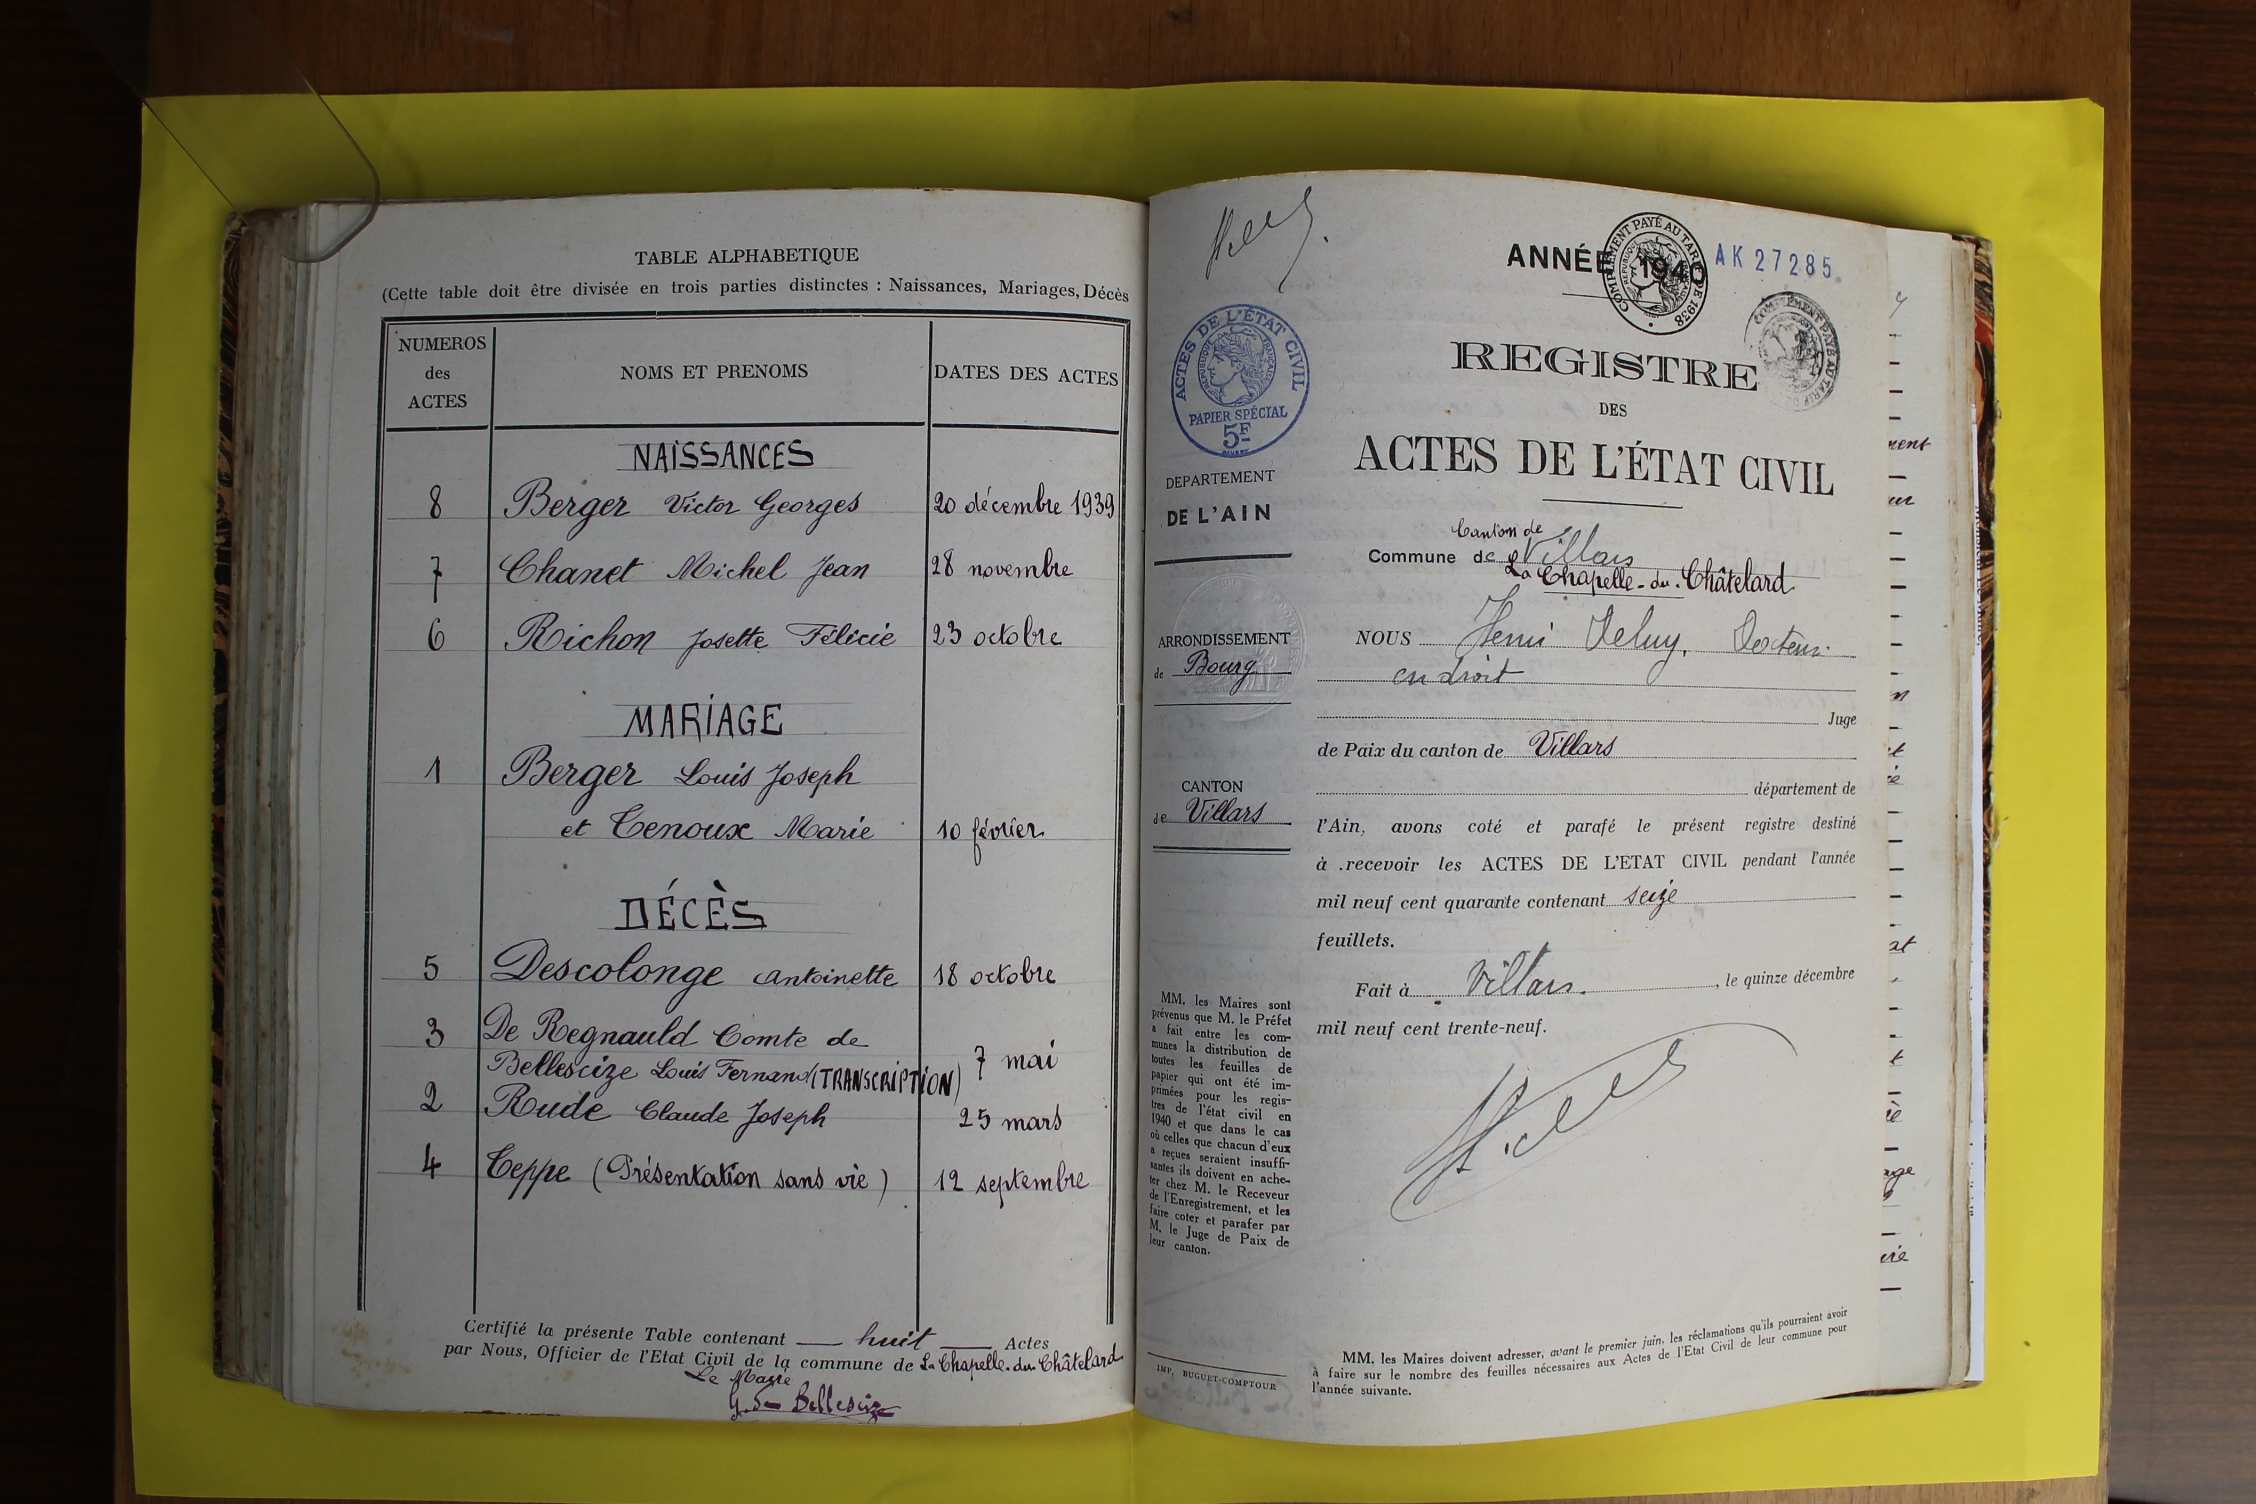 TABLE ALPHABETIQUE
(Cette table doit être divisée en trois parties distinctes : Naissances, Mariages, Décès
NUMEROS des ACTES
NOMS ET PRENOMS
DATES DES ACTES
NAISSANCES
8 Berger Victor Georges 20 décembre 1939
7 Chanet Michel Jean 28 novembre
6 Richon Josette Félicie 23 octobre
MARIAGE
1 Berger Louis Joseph
et Tenoux Marie 10 février
DÉCÈS
5 Descolonge Antoinette 18 octobre
3 De Regnauld Comte de
Bellescize Louis Fernand (TRANSCRIPTION) 7 mai
2 Rude Claude Joseph 25 mars
4 Teppe (Présentation sans vie) 12 septembre
Certifié la présente Table contenant huit Actes
par Nous, Officier de l'Etat Civil de la commune de La Chapelle-du-Châtelard
Le Maire
G. de Bellescize
ANNÉE 1940
COMPLÉMENT PAYÉ AU TARIF DE 1938
AK 27285
ACTES DE L'ÉTAT CIVIL
RÉPUBLIQUE FRANÇAISE
PAPIER SPÉCIAL
5F
DEPARTEMENT
DE L'AIN
ARRONDISSEMENT
de Bourg
CANTON
de Villars
MM. les Maires sont
prévenus que M. le Préfet
a fait entre les com-
munes la distribution de
toutes les feuilles de
papier qui ont été im-
primées pour les regis-
tres de l'état civil en
1940 et que dans le cas
où celles que chacun d'eux
a reçues seraient insuffi-
santes ils doivent en ache-
ter chez M. le Receveur
de l'Enregistrement, et les
faire coter et parafer par
M. le Juge de Paix de
leur canton.
IMP. BUGUET-COMPTOUR
REGISTRE
DES
ACTES DE L'ÉTAT CIVIL
Canton de
Commune de Villars
La Chapelle-du-Châtelard
NOUS Henri Docteur
en droit
Juge
de Paix du canton de Villars
département de
l'Ain, avons coté et parafé le présent registre destiné
à recevoir les ACTES DE L'ETAT CIVIL pendant l'année
mil neuf cent quarante contenant seize
feuillets.
Fait à Villars, le quinze décembre
mil neuf cent trente-neuf.
MM. les Maires doivent adresser, avant le premier juin, les réclamations qu'ils pourraient avoir
à faire sur le nombre des feuilles nécessaires aux Actes de l'Etat Civil de leur commune pour
l'année suivante.